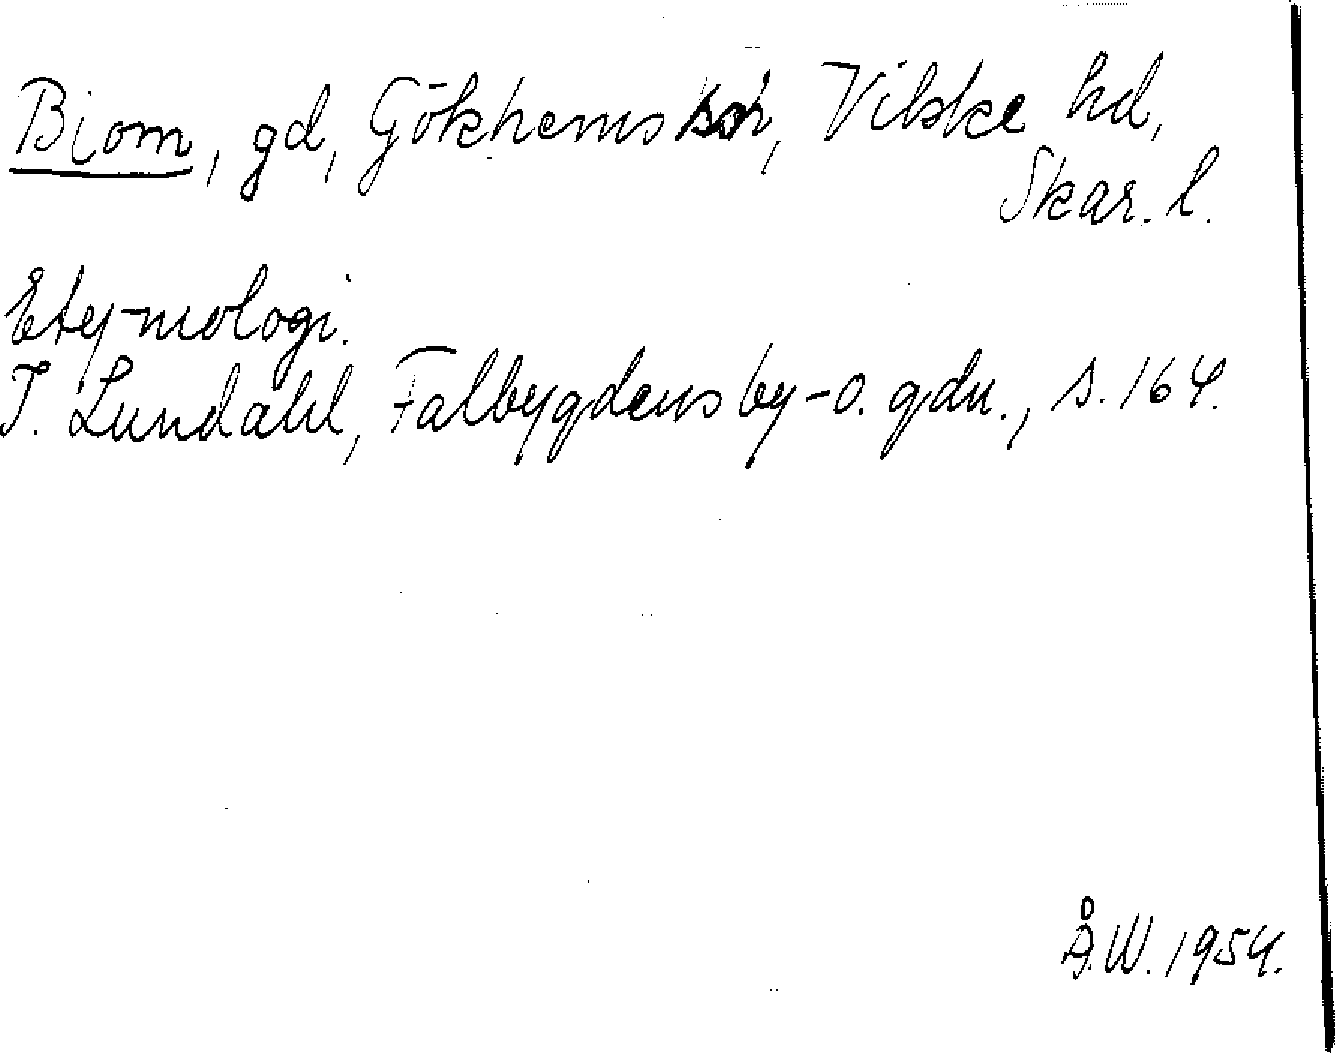 Bjom, gd, Gökhems sn, Vilske hd,
Skar. l.
Etymologi.
I. Lundahl, Falbygdens by- o. gdn., s. 164.
Å.W. 1954.